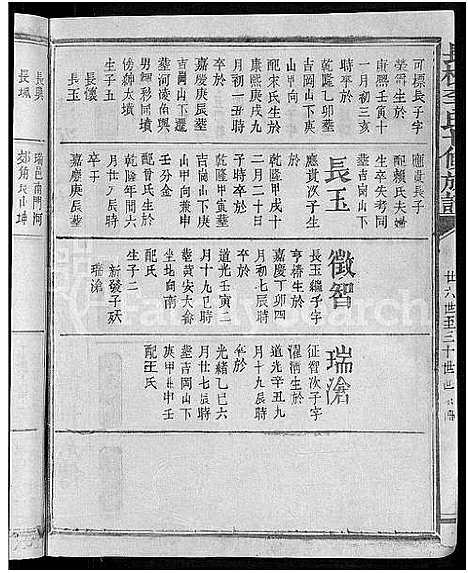 可標長子字
榮爵生於
康熙壬寅十
一月初三亥
時卒於
乾隆乙卯塟
吉岡山下庚
山甲向
配宋氏生於
康熙庚戌九
月初一丑時
卒於
嘉慶庚辰塟
吉岡山下遷
塟河陵角與
男翹秒同墳
傍辭太墳
生子五
長懷
長玉
長興
長珮
應貴長子
配賴氏夫婦
生卒失考同
塟吉崗山下
長玉
應貴次子生
乾隆甲戌十
二月二十日
子時卒於
乾隆甲寅塟
吉崗山下庚
山甲向兼申
壬分金
配曾氏生於
乾隆年間六
月廿八辰時
卒于
嘉慶庚辰塟
瑞邑南門河
坳角艮山坤
徵智
長玉繼子字
亨蓨生於
嘉慶丁卯四
月初七辰時
卒於
道光壬寅二
月十九巳時
塟黃安大畬
坐北向南
配氏
生子二
新發子殀
瑞滄
瑞滄
征智次子字
濯清生於
道光辛丑九
月十九辰時
卒於
光緒乙巳六
月廿七辰時
塟吉岡山下
庚甲兼申寅
配王氏
世六世至三十世